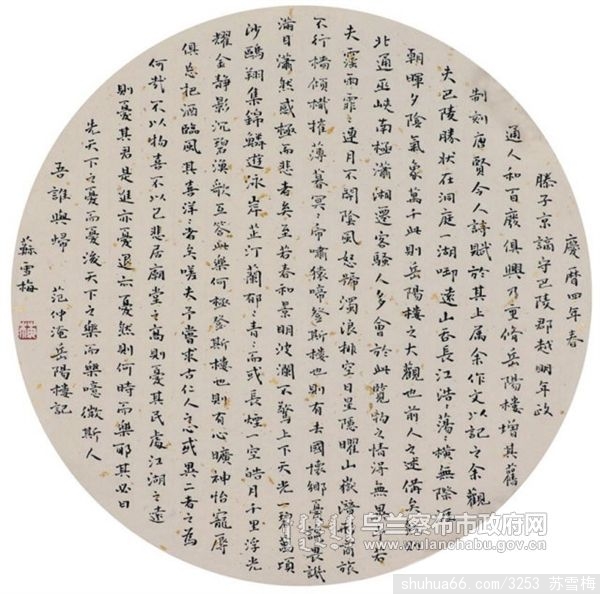 慶曆四年春
滕子京謫守巴陵郡越明年政
通人和百廢俱興乃重脩岳陽樓增其舊
制刻唐賢今人詩賦於其上属余作文以記之余觀
夫巴陵勝狀在洞庭一湖啣遠山吞長江浩〻蕩〻橫無際涯
朝暉夕陰氣象萬千此則岳陽樓之大觀也前人之述備矣然則
北通巫峽南極瀟湘遷客騷人多會於此覽物之情得無異乎若
夫霪雨霏〻連月不開陰風怒號濁浪排空日星隱曜山嶽潛形商旅
不行檣傾檝摧薄暮冥〻虎嘯猿啼登斯樓也則有去國懷鄉憂讒畏譏
滿目瀟然感極而悲者矣至若春和景明波瀾不驚上下天光一碧萬頃
沙鷗翔集錦鱗遊泳岸芷汀蘭郁〻青〻而或長煙一空皓月千里浮光
耀金靜影沉碧漁歌互答此樂何極登斯樓也則有心曠神怡寵辱
俱忘把酒臨風其喜洋〻者矣嗟夫予嘗求古仁人之心或異二者之為
何哉不以物喜不以己悲居廟堂之高則憂其民處江湖之遠
則憂其君是進亦憂退亦憂然則何時而樂耶其必曰
先天下之憂而憂後天下之樂而樂噫微斯人
吾誰與歸 范仲淹岳陽樓記
蘇雪梅
乌兰察布市政府网
www.wulanchabu.gov.cn
shuhua66.com/3253 苏雪梅